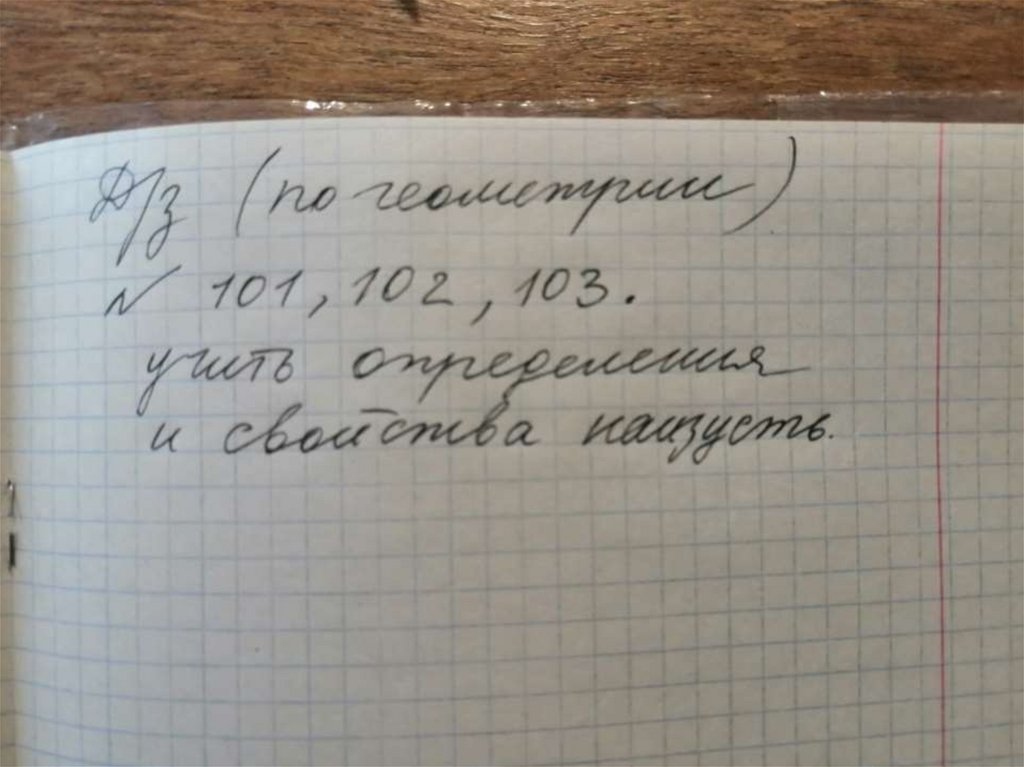 Д/з (по геометрии)
№ 101, 102, 103.
учить определения
и свойства наизусть.